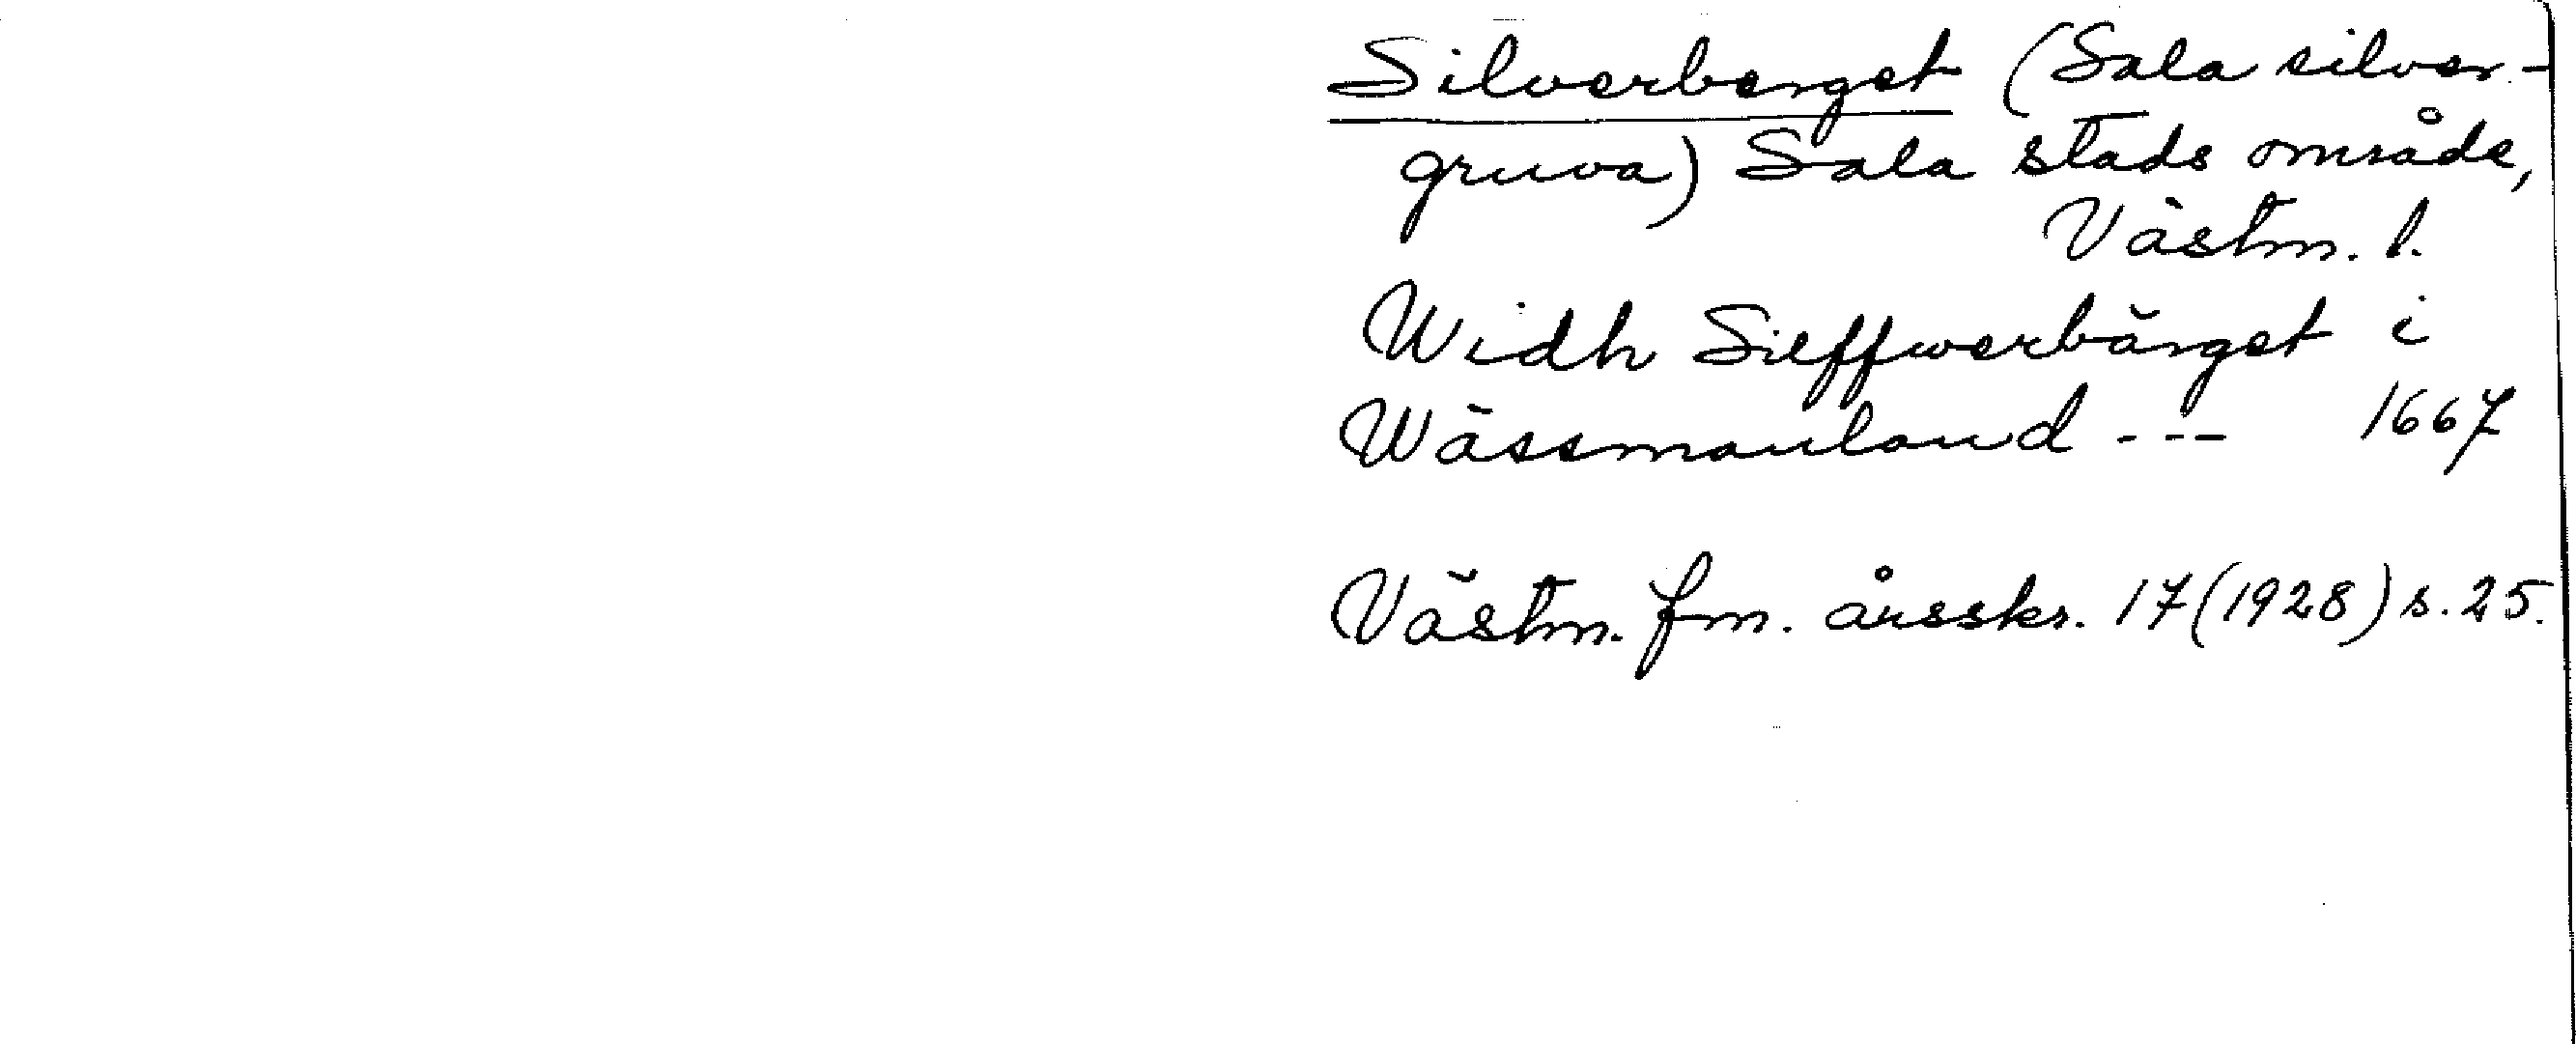 Silverberget (Sala silver-
gruva) Sala stads område,
Västm. l.
Widh Silffwerbärget i
Wässmanland --- 1667
Västm. fm. årsskr. 17 (1928) s. 25.